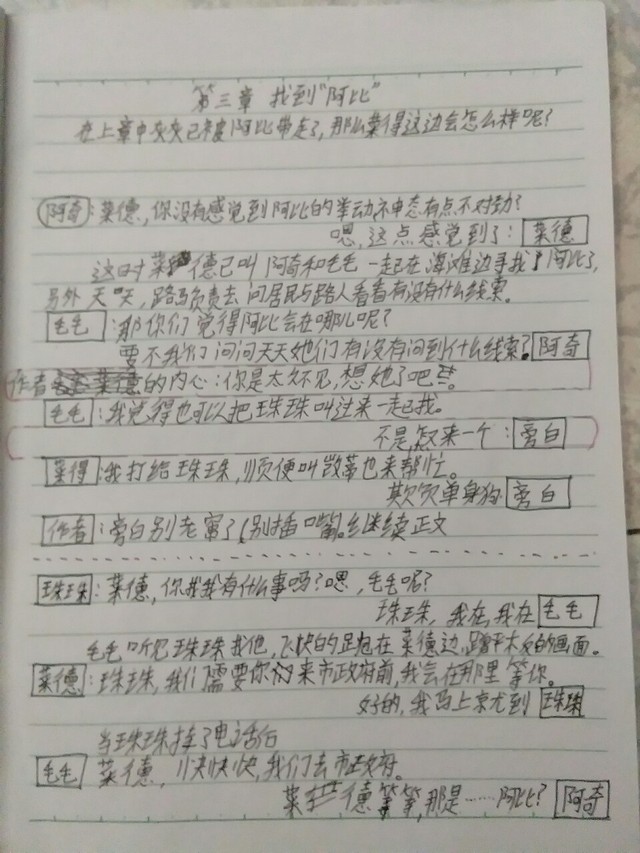 第三章 找到"阿比"
在上章中灰灰已被阿比带走了,那么菜得这边会怎么样呢?
阿奇:菜德,你没有感觉到阿比的举动、神态有点不对劲?
嗯,这点感觉到了:菜德
这时菜德已叫阿奇和毛毛一起在海滩边寻找阿比了,
另外天天,路马负责去问居民与路人看看有没有什么线索。
毛毛:那你们觉得阿比会在哪儿呢?
要不我们问问天天她们有没有问到什么线索?阿奇
作者菜德的内心:你是太久不见,想她了吧
毛毛:我觉得也可以把珠珠叫过来一起找。
不是,怎又来一个:旁白
菜得:我打给珠珠,顺便叫蒂也来帮忙。
欺负单身狗:旁白
作者:旁白别老窜了(别插嘴)。继续正文
珠珠:菜德,你找我有什么事吗?嗯,毛毛呢?
珠珠,我在,我在 毛毛
毛毛听见珠珠找他,飞快的跑在菜德边,蹭平木板的画面。
菜德:珠珠,我们需要你们来市政府前,我会在那里等你。
好的,我马上就到 珠珠
当珠珠挂了电话后
毛毛 菜德,快快快,我们去市政府。
菜德等等,那是……阿比? 阿奇